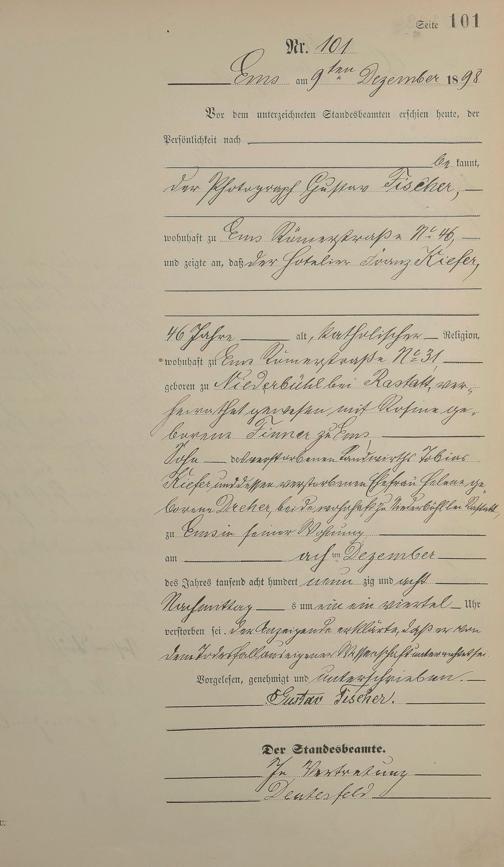 Seite 101
Nr. 101
Ems am 9ten Dezember 1898
Vor dem unterzeichneten Standesbeamten erschien heute, der
Persönlichkeit nach
be kannt,
der Photograph Gustav Fischer,
wohnhaft zu Ems Römerstraße No 46,
und zeigte an, daß der Hotelier Franz Kiefer,
46 Jahre alt, katholischer Religion,
wohnhaft zu Ems Römerstraße No 31,
geboren zu Niederbühl bei Rastatt, ver-
heirathet gewesen mit Rosine ge-
borene Finner zu Ems,
Sohn des verstorbenen Landwirths Tobias
Kiefer und dessen verstorbenen Ehefrau Helene ge-
borene Dreher, beide wohnhaft zu Niederbühl bei Rastatt
zu Ems in seiner Wohnung
am achten Dezember
des Jahres tausend acht hundert neun zig und acht
Nachmittag s um ein ein viertel Uhr
verstorben sei. Der Anzeigende erklärte, daß er von
dem Todesfall aus eigener Wissenschaft unterrichtet sei
Vorgelesen, genehmigt und unterschrieben.
Gustav Fischer.
Der Standesbeamte.
In Vertretung